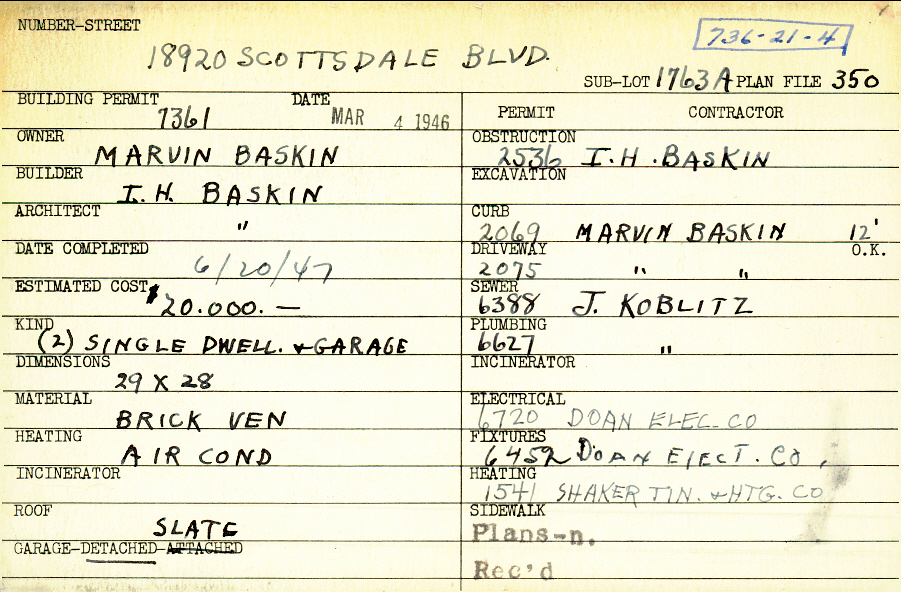 NUMBER-STREET
18920 SCOTTSDALE BLVD.
736-21-4
SUB-LOT 1763A PLAN FILE 350
BUILDING PERMIT 7361
DATE MAR 4 1946
OWNER MARVIN BASKIN
BUILDER I. H. BASKIN
ARCHITECT "
DATE COMPLETED 6/20/47
ESTIMATED COST $20.000.—
KIND (2) SINGLE DWELL. & GARAGE
DIMENSIONS 29 X 28
MATERIAL BRICK VEN
HEATING AIR COND
INCINERATOR
ROOF SLATE
GARAGE-DETACHED-ATTACHED
PERMIT CONTRACTOR
OBSTRUCTION 2536 I. H. BASKIN
EXCAVATION
CURB 2069 MARVIN BASKIN 12'
O.K.
DRIVEWAY 2075 " "
SEWER 6388 J. KOBLITZ
PLUMBING 6627 "
INCINERATOR
ELECTRICAL 6720 DOAN ELEC. CO
FIXTURES 6452 DOAN ELECT. CO,
HEATING 1541 SHAKER TIN. & HTG. CO
SIDEWALK
Plans-n.
Rec'd